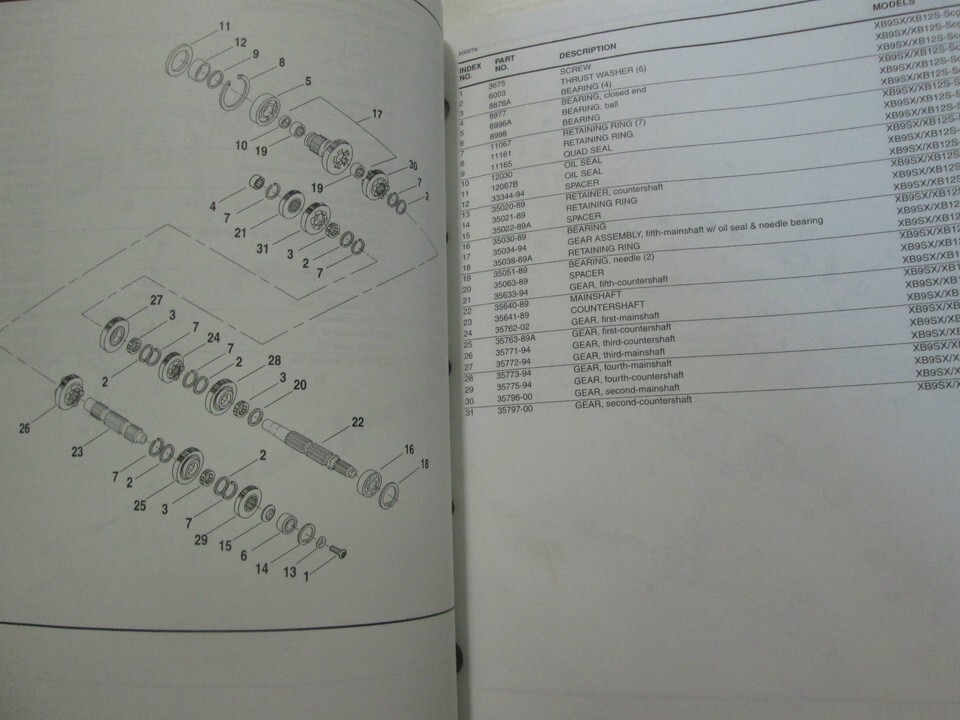 11
12
9
8
5
17
10
19
30
19
7
2
4
7
21
31
3
2
7
27
3
7
24
7
2
28
3
20
2
22
26
23
7
2
25
3
2
7
29
15
6
14
13
1
16
18
MODELS
INDEX NO. PART NO. DESCRIPTION
1 3675 SCREW XB9SX/XB12S-Scg
2 6003 THRUST WASHER (6) XB9SX/XB12S-Scg
3 8876A BEARING (4) XB9SX/XB12S-Scg
4 8977 BEARING, closed end XB9SX/XB12S-Sc
5 8996A BEARING, ball XB9SX/XB12S-Sc
6 8998 BEARING XB9SX/XB12S-S
7 11067 RETAINING RING (7) XB9SX/XB12S-S
8 11161 RETAINING RING XB9SX/XB12S-S
9 11165 QUAD SEAL XB9SX/XB12S-
10 12030 OIL SEAL XB9SX/XB12S-
11 12067B OIL SEAL XB9SX/XB12S
12 33344-94 SPACER XB9SX/XB12S
13 35020-89 RETAINER, countershaft XB9SX/XB12S
14 35021-89 RETAINING RING XB9SX/XB12
15 35022-89A SPACER XB9SX/XB12
16 35030-89 BEARING XB9SX/XB12
17 35034-94 GEAR ASSEMBLY, fifth-mainshaft w/ oil seal & needle bearing XB9SX/XB12
18 35038-89A RETAINING RING XB9SX/XB1
19 35051-89 BEARING, needle (2) XB9SX/XB1
20 35063-89 SPACER XB9SX/XB1
21 35633-94 GEAR, fifth-countershaft XB9SX/XB
22 35640-89 MAINSHAFT XB9SX/XB
23 35641-89 COUNTERSHAFT XB9SX/XB
24 35762-02 GEAR, first-mainshaft XB9SX/XB
25 35763-89A GEAR, first-countershaft XB9SX/X
26 35771-94 GEAR, third-countershaft XB9SX/X
27 35772-94 GEAR, third-mainshaft XB9SX/X
28 35773-94 GEAR, fourth-mainshaft XB9SX/
29 35775-94 GEAR, fourth-countershaft XB9SX/
30 35796-00 GEAR, second-mainshaft XB9SX/
31 35797-00 GEAR, second-countershaft XB9SX/